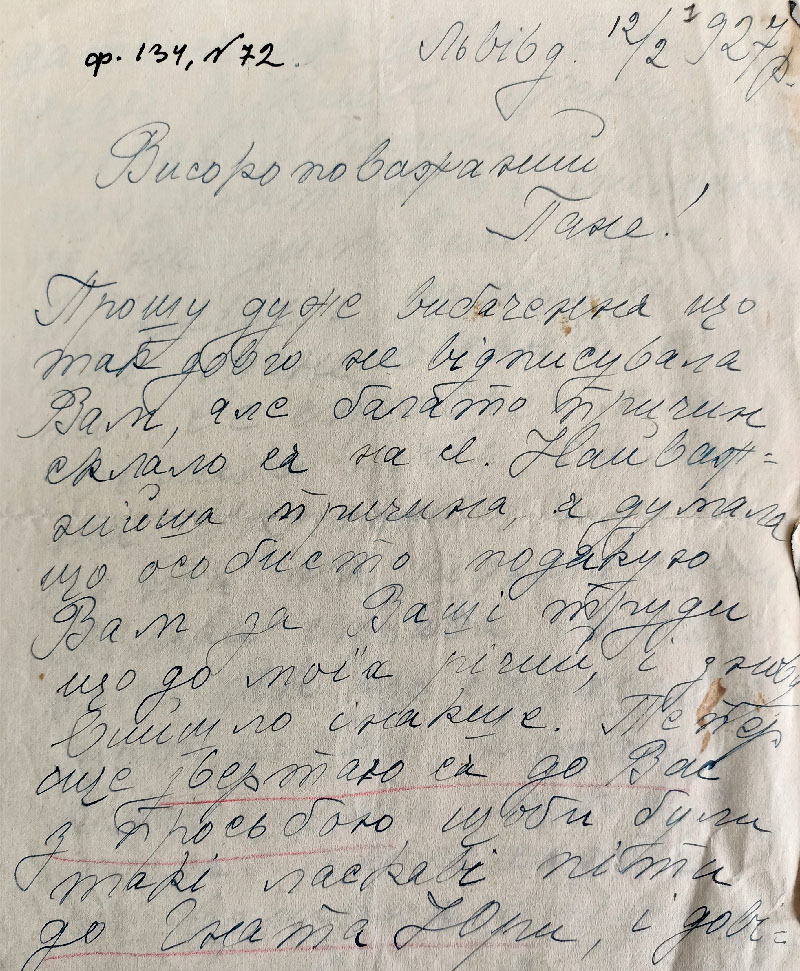 ф. 134, N 72.
Львів д. 12/2 1927 р.
Високоповажаний
Пане!
Прошу дуже вибачення що
так довго не відписувала
Вам, але багато причин
склало ся на се. Найваж=
нійша причина, я думала
що особисто подякую
Вам за Ваші труди
що до моїх річий, і знову
вийшло інакше. Тепер
ще звертаю ся до Вас
з просьбою щоби були
такі ласкаві піти
до Гната Юри, і дові=